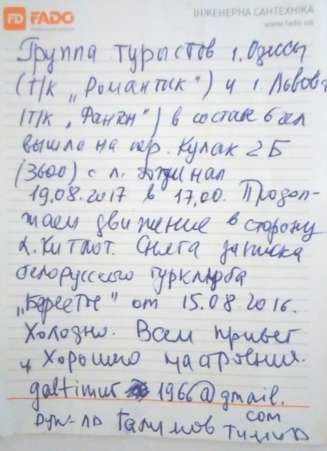 FADO
ІНЖЕНЕРНА САНТЕХНІКА
www.fado.ua
Группа туристов г. Одессы
(т/к „Романтик") и г. Львова
(т/к „Фанян") в составе 6 чел
вышла на пер. Кулак 2Б
(3600) с л.
19.08.2017 в 17,00. Продол-
жаем движение в сторону
л. Китлот. Снята записка
белорусского турклуба
от 15.08.2016.
Холодно. Всем привет
и хорошего настроения.
galtimur 1966@gmail.
com
рук-ль Галимов Тимур